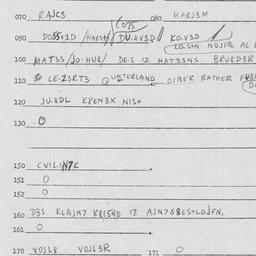 070 RAJCS 080 MARJ3M
(075
090 DOSSV1D /HAESH/ DU.UV1D KO.V3D
LOSTN NOJFR AL
100 MAT3S /JO.HUL/ DE.S IZ MAT3SNS BRUED3R
110 LE.23RT3 QUNTERLAND OIBER RATHER
120 JU.UDL K8EN3X NIST
130 O
150 CVILINZK
151 O
152 O
160 D3S KLAJN7 K8I5ND IZ AJN7G8ESTLOJFN,
161 O
170 VOJL8 VOJL3R 171 O